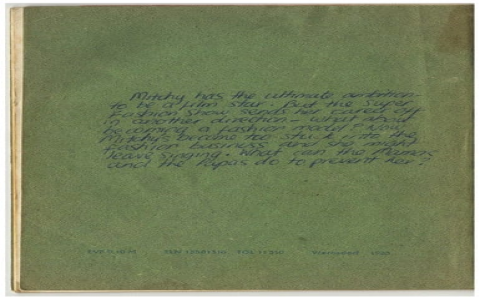 Mitchy has the ultimate ambition -
to be a film star. But the Super
Fashion Show sends her career off
in another direction - what about
becoming a fashion model? Now
Mitchy's become too stuck into the
fashion business and she might
leave singing. What can the Mamas
and the Papas do to prevent her?